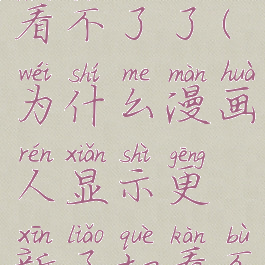 看不了了(
wéi shí me màn huà
为什么漫画
rén xiǎn shì gēng
人显示更
xīn liǎo què kàn bù
新了却看不